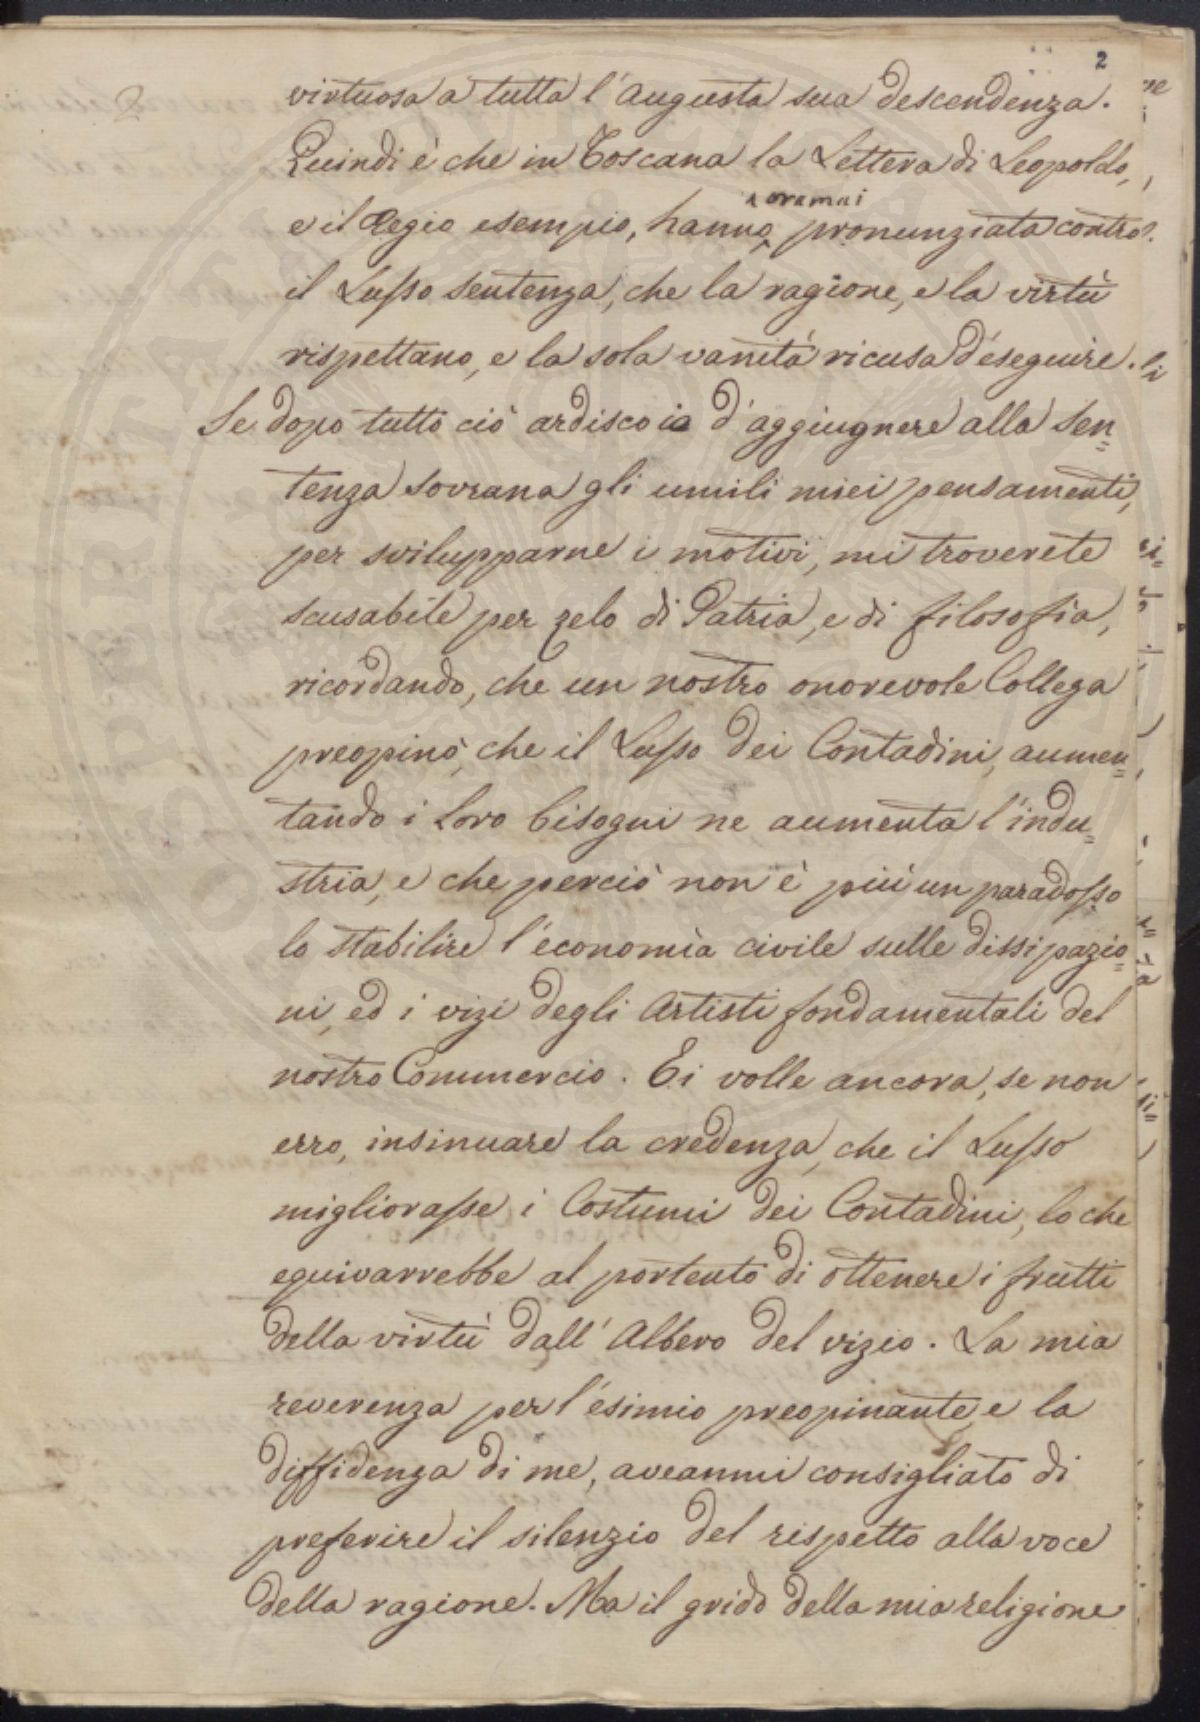 2
virtuosa a tutta l'augusta sua descendenza.
Quindi è che in Toscana la Lettera di Leopoldo,
oramai
e il Regio esempio, hanno pronunziata contro
il Lusso sentenza, che la ragione, e la virtù
rispettano, e la sola vanità ricusa d'eseguire.
Se dopo tutto ciò ardisco io d'aggiugnere alla sen=
tenza sovrana gli umili miei pensamenti,
per svilupparne i motivi, mi troverete
scusabile per zelo di Patria, e di filosofia,
ricordando, che un nostro onorevole Collega
preopinò, che il Lusso dei Contadini, aumen=
tando i loro bisogni ne aumenta l'indu=
stria, e che perciò non è più un paradosso
lo stabilire l'economia civile sulle dissipazio=
ni, ed i vizi degli Artisti fondamentali del
nostro Commercio. Ei volle ancora, se non
erro, insinuare la credenza, che il Lusso
migliorasse i Costumi dei Contadini, lo che
equivarrebbe al portento di ottenere i frutti
della virtù dall'Albero del vizio. La mia
reverenza per l'esimio preopinante, e la
diffidenza di me, aveanmi consigliato di
preferire il silenzio del rispetto alla voce
della ragione. Ma il grido della mia religione